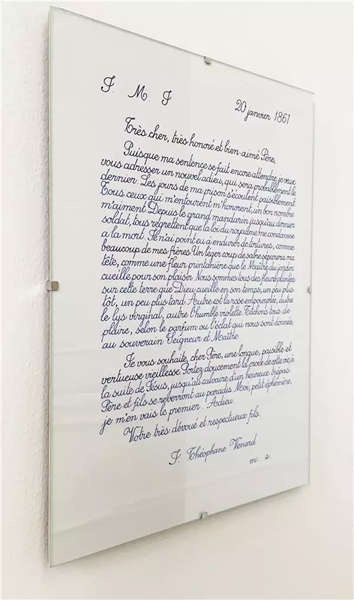 J. M. J
20 janvier 1861
Très cher, très honoré et bien-aimé Père,
Puisque ma sentence se fait encore attendre, je veux
vous adresser un nouvel adieu, qui sera probablement le
dernier. Les jours de ma prison s'écoulent paisiblement
Tous ceux qui m'entourent m'honorent, un bon nombre
m'aiment. Depuis le grand mandarin jusqu'au dernier
soldat, tous regrettent que la loi du royaume me condamne
à la mort. Je n'ai point eu à endurer de tortures, comme
beaucoup de mes frères. Un léger coup de sabre séparera ma
tête, comme une fleur printanière que le Maître du jardin
cueille pour son plaisir. Nous sommes tous des fleurs plantées
sur cette terre que Dieu cueille en son temps, un peu plus
tôt, un peu plus tard. Autre est la rose empourprée, autre
le lys virginal, autre l'humble violette. Tâchons tous de
plaire, selon le parfum ou l'éclat qui nous sont donnés,
au souverain Seigneur et Maître.
Je vous souhaite, cher Père, une longue, paisible et
vertueuse vieillesse. Portez doucement la croix de cette vie, à
la suite de Jésus, jusqu'au calvaire d'un heureux trépas.
Père et fils se reverront au paradis. Moi, petit éphémère,
je m'en vais le premier. Adieu.
Votre très dévoué et respectueux fils.
J. Théophane Vénard
m. a.